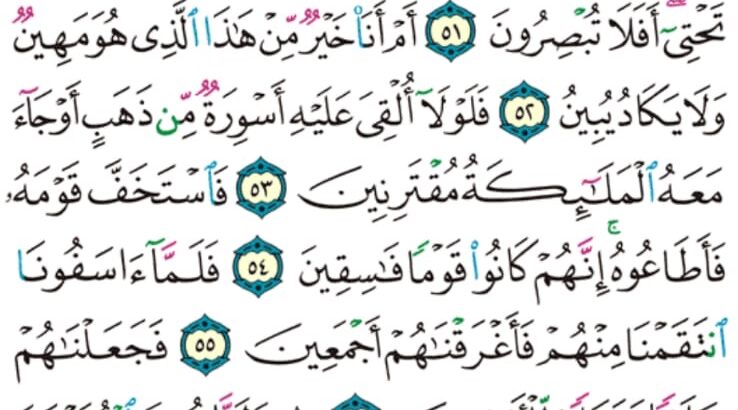 تَحْتِىٓ أَفَلَا تُبْصِرُونَ ٥١ أَمْ أَنَا۠ خَيْرٌ مِّنْ هَٰذَا ٱلَّذِى هُوَ مَهِينٌ
وَلَا يَكَادُ يُبِينُ ٥٢ فَلَوْلَآ أُلْقِىَ عَلَيْهِ أَسْوِرَةٌ مِّن ذَهَبٍ أَوْ جَآءَ
مَعَهُ ٱلْمَلَٰٓئِكَةُ مُقْتَرِنِينَ ٥٣ فَٱسْتَخَفَّ قَوْمَهُۥ
فَأَطَاعُوهُ ۚ إِنَّهُمْ كَانُوا۟ قَوْمًا فَٰسِقِينَ ٥٤ فَلَمَّآ ءَاسَفُونَا
ٱنتَقَمْنَا مِنْهُمْ فَأَغْرَقْنَٰهُمْ أَجْمَعِينَ ٥٥ فَجَعَلْنَٰهُمْ